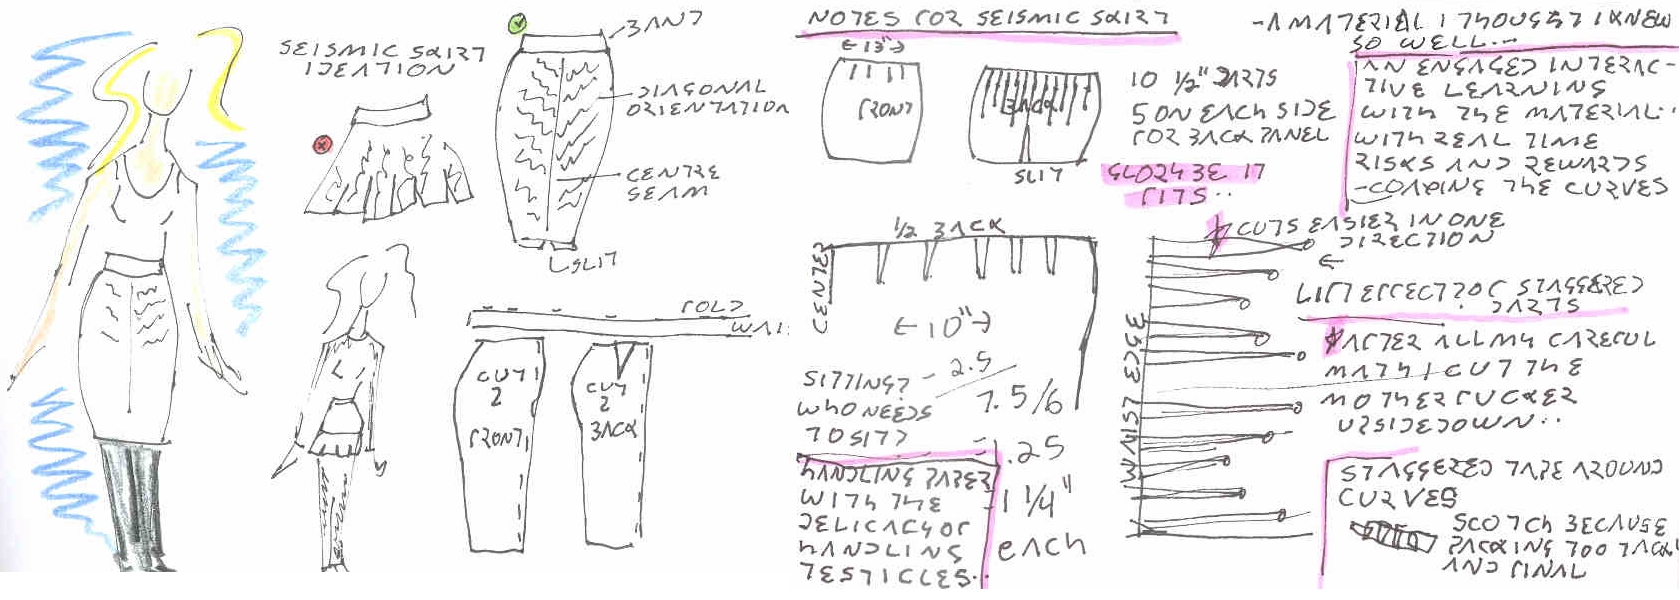 SEISMIC SKIRT
IDEATION
BAND
DIAGONAL
ORIENTATION
CENTRE
SEAM
SLIT
FOLD
CUT
2
FRONT
CUT
2
BACK
NOTES FOR SEISMIC SKIRT
FRONT
BACK
SLIT
10 1/2" DARTS
5 ON EACH SIDE
FOR BACK PANEL
GLORY BE IT
FITS..
1/2 BACK
CENTER
←10"→
SITTING?
WHO NEEDS
TO SIT?
- 2.5
7.5/6
= 1.25
1 1/4"
each
HANDLING PAPER
WITH THE
DELICACY OF
HANDLING
TESTICLES..
-A MATERIAL I THOUGHT I KNEW
SO WELL...
AN ENGAGED INTERAC-
TIVE LEARNING
WITH THE MATERIAL..
WITH REAL TIME
RISKS AND REWARDS
-COAXING THE CURVES
CUTS EASIER IN ONE
DIRECTION
←
WAIST EDGE
LIFT EFFECT OF STAGGERED
DARTS
AFTER ALL MY CAREFUL
MATH I CUT THE
MOTHERFUCKER
UPSIDEDOWN..
STAGGERED TAPE AROUND
CURVES
SCOTCH BECAUSE
PACKING TOO TACKY
AND FINAL